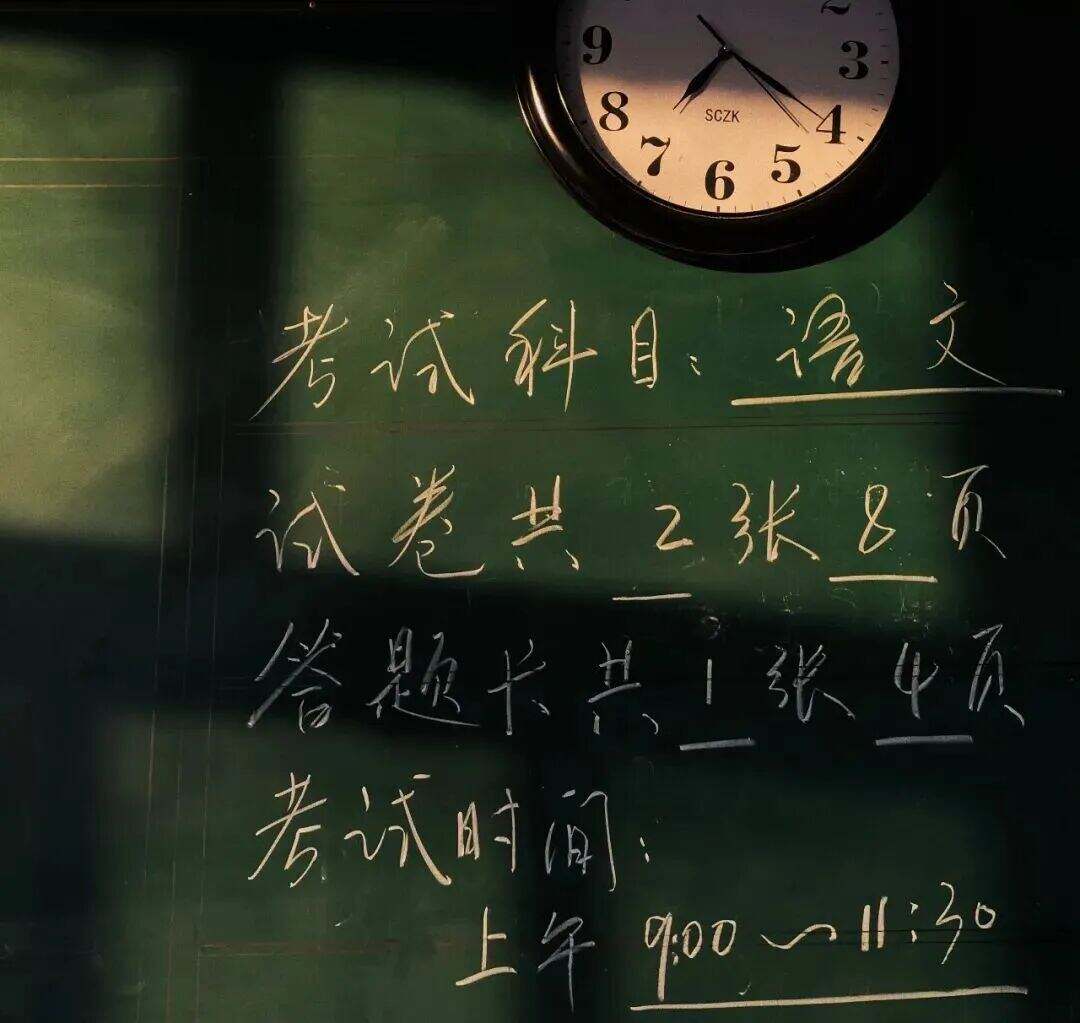 2
9
3
8
SCZK
4
7
5
6
考试科目：语文
试卷共 2 张 8 页
答题卡共 1 张 4 页
考试时间：
上午 9:00～11:30